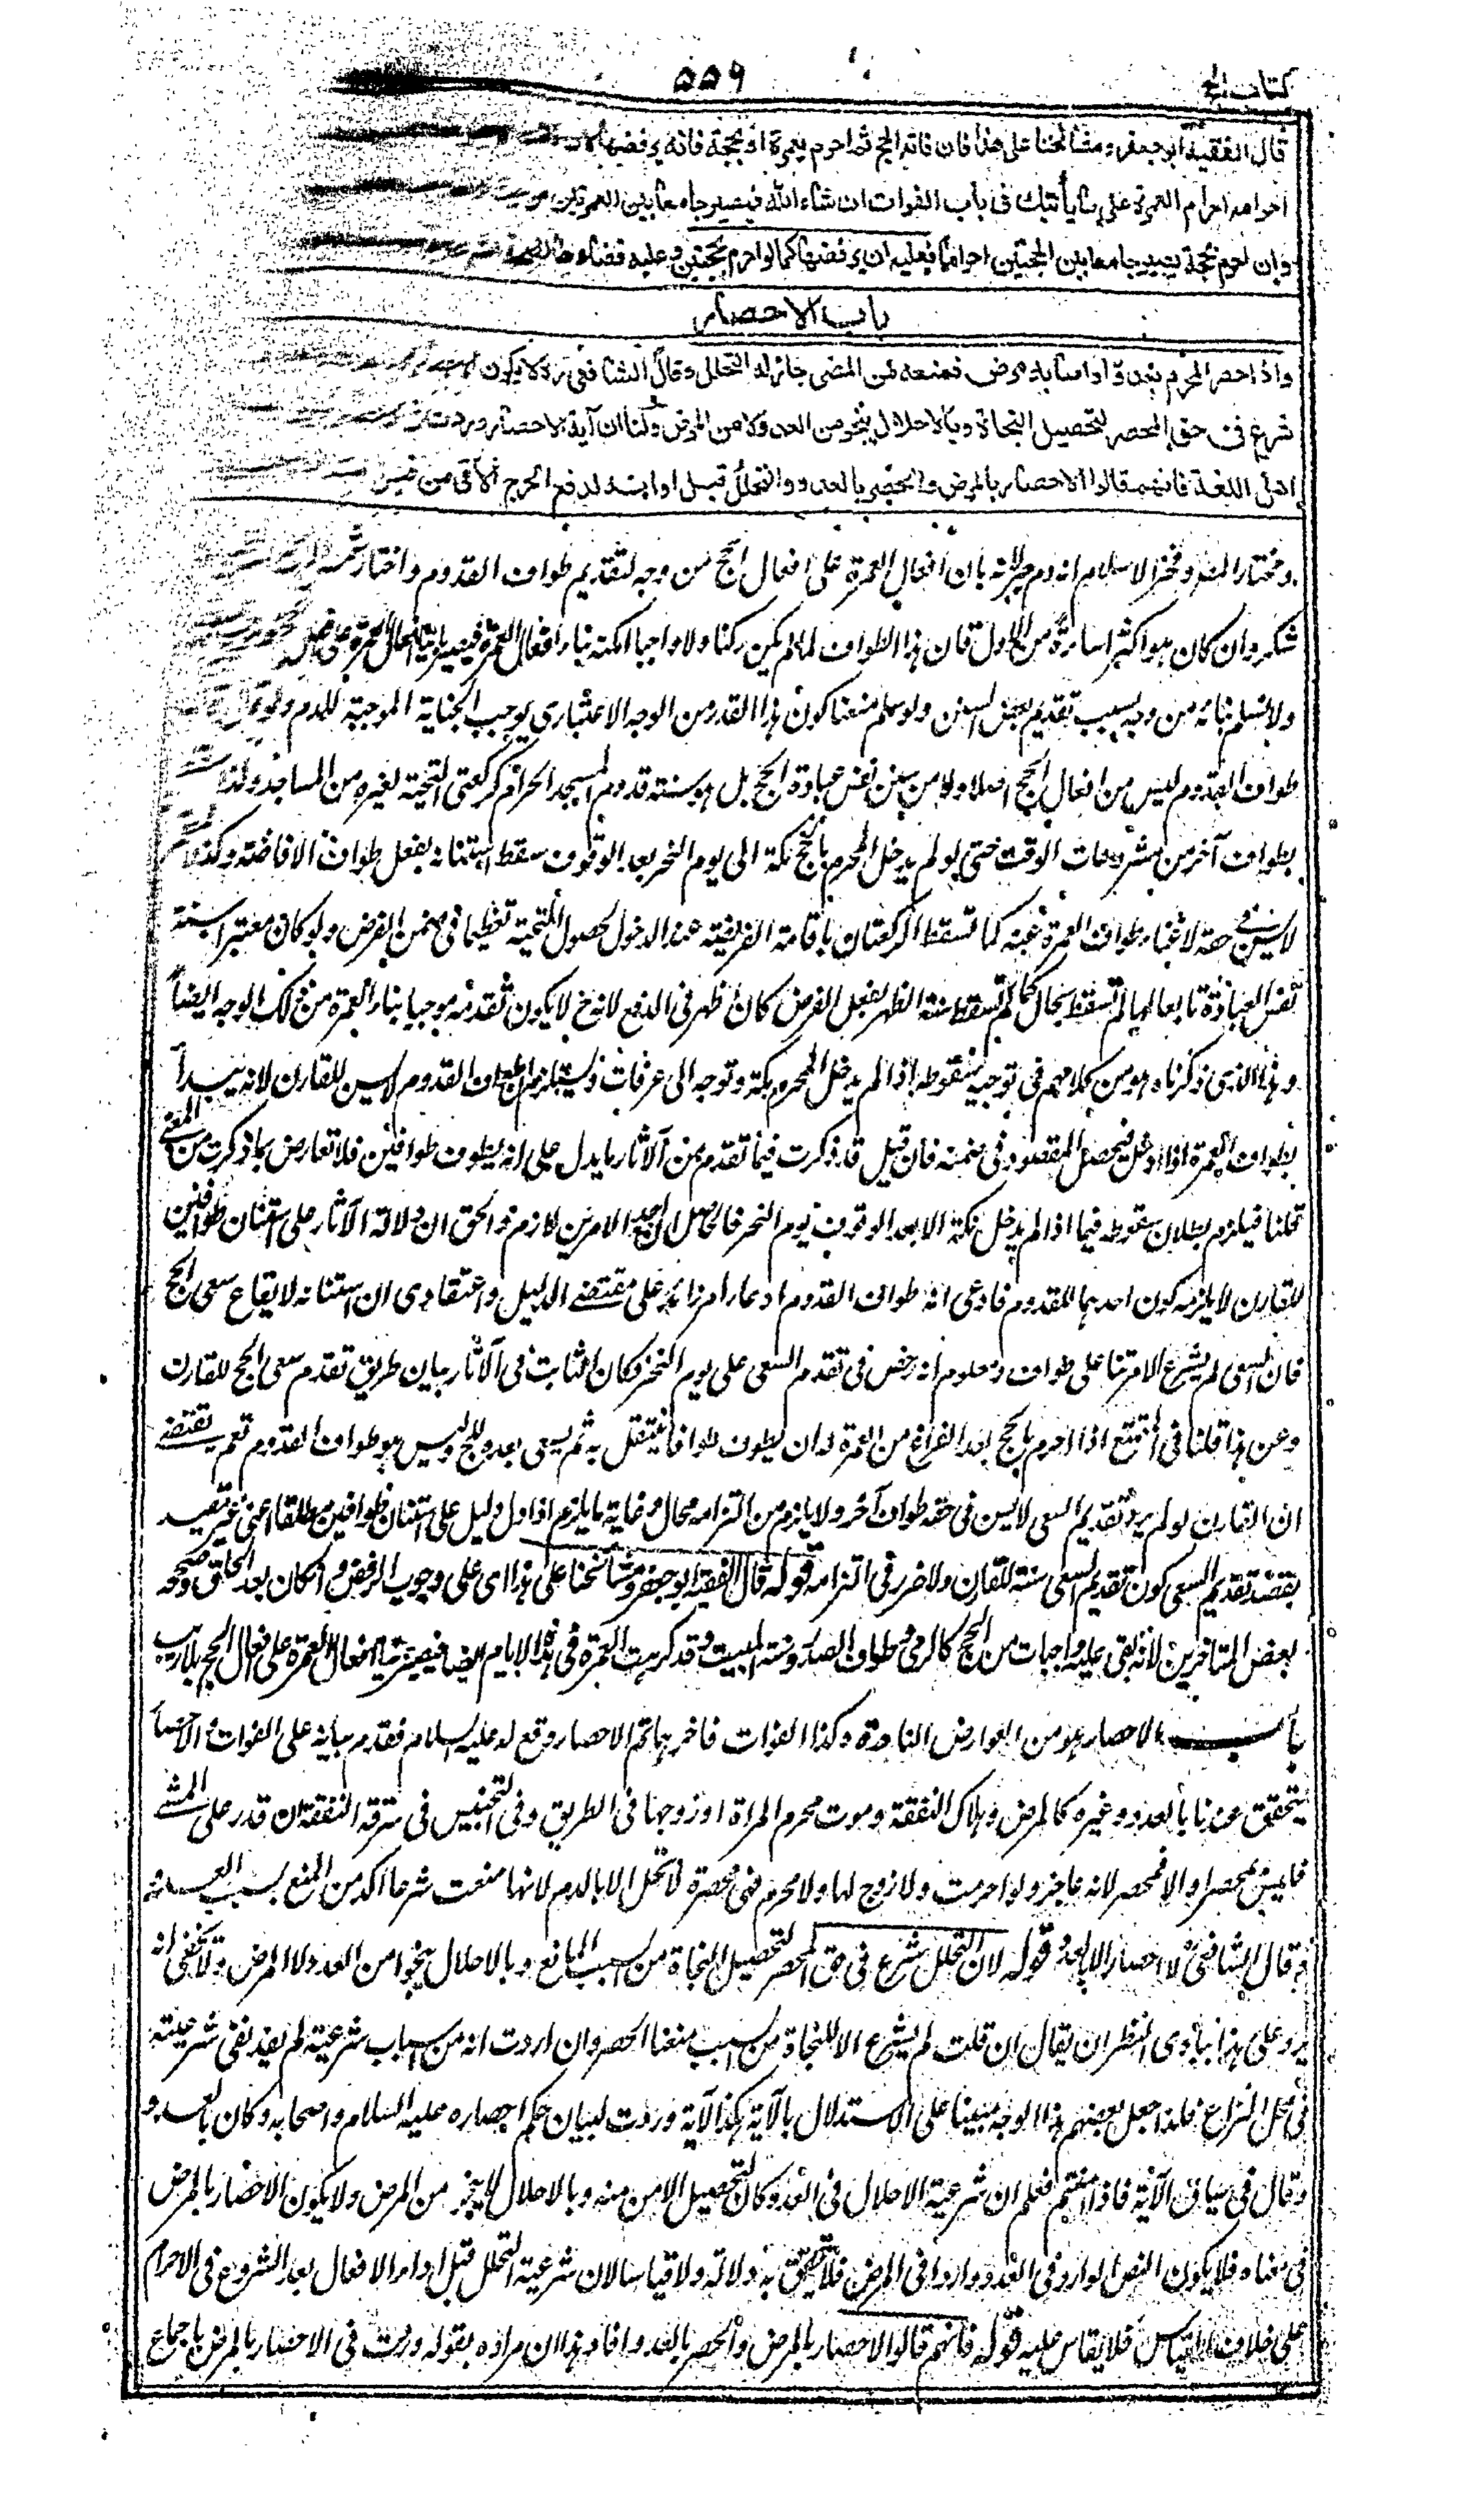 كتاب الحج
۵۵۹
قال الفقيه ابو جعفر ومشائخنا على هذا فان فاته الحج ثم احرم بعمرة او بحجة فانه يرفضها لان
احرامه احرام العمرة على ما يأتيك فى باب الفوات ان شاء الله فيصير جامعا بين العمرتين من حيث
وان احرم بحجة يصير جامعا بين الحجتين احراما فعليه ان يرفضها كما لو احرم بحجتين وعليه قضاؤها
باب الاحصار
واذا احصر المحرم بعدو او اصابه مرض فمنعه من المضى جاز له التحلل وقال الشافعى رح لا يكون
شرع فى حق المحصر لتحصيل النجاة وبالاحلال ينجو من العدو لا من المرض ولنا ان آية الاحصار وردت
اهل اللغة فانهم قالوا الاحصار بالمرض والحصر بالعدو والتحلل قبل اوانه لدفع الحرج الآتى من قبل
ومختار المص وفخر الاسلام انه دم جبر لانه بان افعال العمرة على افعال الحج من وجه لتقديم طواف القدوم واختار شمس
شكر وان كان هو اكثر اساءة من الاول فان هذا الطواف لما لم يكن ركنا ولا واجبا امكنه بناء افعال العمرة
ولا نسلم بنائه من وجه بسبب تقديم بعض السنن ولو سلم منعنا كون هذا القدر من الوجه الاعتبارى يوجب الجناية الموجبة للدم
طواف القدوم ليس من افعال الحج اصلا ولا من سنن نفس عبادة الحج بل هو سنة قدوم المسجد الحرام كركعتى التحية لغيره من المساجد ولذا
بطواف آخر من مشروعات الوقت حتى لو لم يدخل المحرم بالحج مكة الى يوم النحر بعد الوقوف سقط استنانه بفعل طواف الافاضة وكذا
لا يسن فى حقه لاغناء طواف العمرة عنه كما تسقط الركعتان باقامة الفريضة عند الدخول لحصول التحية تعظيما فى ضمن الفرض ولو كان معتبرا سنة
نفس العبادة تابعا لها لم تسقط بحال كما لم تسقط سنة الظهر بفعل الفرض كان اظهر فى الدفع لانه ح لا يكون تقدمه موجبا بناء العمرة من ذلك الوجه ايضا
وهذا الذى ذكرناه هو من كلامهم فى توجيه سقوطه اذا لم يدخل المحرم مكة وتوجه الى عرفات طواف القدوم لا يسن للقارن لانه يبدأ
بطواف العمرة اذا دخل فيحصل المقصود فى ضمنه فان قيل قد ذكرت فيما تقدم من الآثار ما يدل على انه يطوف طوافين فلا تعارض بما ذكرت من المعنى
قلنا فيلزم بطلان سقوطه فيما اذا لم يدخل مكة الا بعد الوقوف يوم النحر فالحاصل ان احد الامرين لازم والحق ان دلالة الآثار على استنان طوافين
للقارن لا يلزمه كون احدهما للقدوم فادعى انه طواف القدوم ادعاء امر زائد على مقتضى الدليل واعتقادى ان استنانه لايقاع سعى الحج
فان السعى لم يشرع الا مرتبا على طواف ومعلوم انه رخص فى تقدم السعى على يوم النحر فكان الثابت فى الآثار بيان طريق تقدم سعى الحج للقارن
وعن هذا قلنا فى المتمتع اذا احرم بالحج بعد الفراغ من العمرة له ان يطوف طوافا يتنفل به ثم يسعى بعده للحج وليس هو طواف القدوم نعم يقتضى
ان القارن لو لم يرد تقديم السعى لا يسن فى حقه طواف آخر ولا يلزم من التزامه محال وغاية ما يلزم اذا دل دليل على استنان طوافين مطلقا اعنى غير مقيد
بقصد تقديم السعى كون تقديم السعى سنة للقارن ولا ضرر فى التزامه قوله قال الفقيه ابو جعفر ومشائخنا على هذا اى على وجوب الرفض وان كان بعد الحلق وصححه
بعض المتاخرين لانه بقى عليه واجبات من الحج كالرمى وطواف الصدر وسنة المبيت وقد كرهت العمرة فى هذه الايام ايضا فيصير بانيا افعال العمرة على افعال الحج بلا ريب
باب الاحصار هو من العوارض النادرة وكذا الفوات فاخرهما ثم الاحصار وقع له عليه السلام فقدم بيانه على الفوات والاحصار
يتحقق عندنا بالعدو وغيره كالمرض وهلاك النفقة وموت محرم المراة او زوجها فى الطريق وفى التجنيس فى سرقة النفقة ان قدر على المشى
فليس بمحصر والا فمحصر لانه عاجز ولو احرمت ولا زوج لها ولا محرم فهى محصرة لا تحل الا بالدم لانها منعت شرعا آكد من المنع بسبب العدو
وقال الشافعى لا احصار الا بالعدو قوله لان التحلل شرع فى حق المحصر لتحصيل النجاة من السبب المانع وبالاحلال ينجو من العدو لا المرض ولا يخفى انه
يرد على هذا بادى النظر ان يقال ان قلت لم يشرع الا للنجاة من السبب منعنا الحصر وان اردت انه من اسباب شرعيته لم يفد نفى شرعيته
فى محل النزاع فلذا جعل بعضهم هذا الوجه مبينا على الاستدلال بالآية هكذا الآية وردت لبيان حكم احصاره عليه السلام واصحابه وكان بالعدو
وقال فى سياق الآية فاذا امنتم فعلم ان شرعية الاحلال فى العدو كان لتحصيل الامن منه وبالاحلال لا ينجو من المرض ولا يكون الاحصار بالمرض
فى معناه فلا يكون النص الوارد فى العدو واردا فى المرض فلا يلحق به دلالة ولا قياسا لان شرعية التحلل قبل اداء الافعال بعد الشروع فى الاحرام
على خلاف القياس فلا يقاس عليه قوله فانهم قالوا الاحصار بالمرض والحصر بالعدو افاد بهذا ان مراده بقوله وردت فى الاحصار بالمرض باجماع